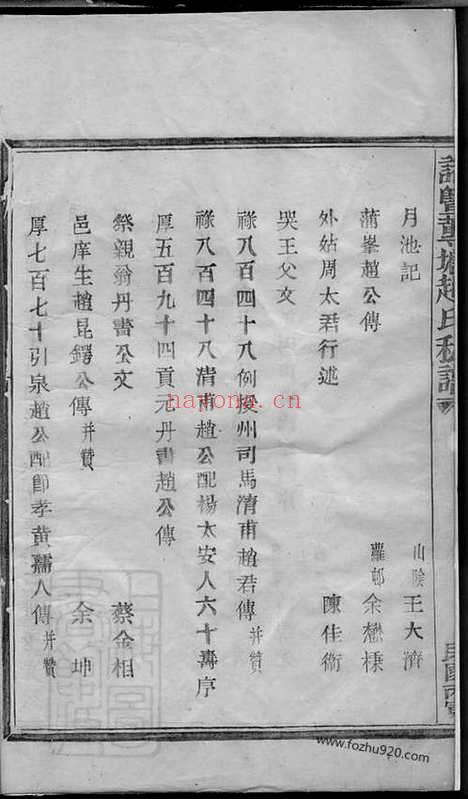 諸暨 塘趙氏私譜
民國丙寅
月池記 山陰 王大濟
蒲峯趙公傳 蘿邨 余楙棅
外姑周太君行述 陳佳衡
哭王父文
祿八百四十八例授州司馬清甫趙君傳 并贊
祿八百四十八清甫趙公配楊太安人六十壽序
厚五百九十四貢元丹書趙公傳
祭親翁丹書公文 蔡金相
邑庠生趙昆鐸公傳 并贊 余坤
厚七百七十引泉趙公配節孝黃孺人傳 并贊
hayona.cn
www.fozhu920.com